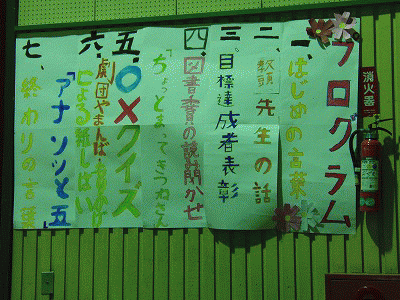 プログラム
一、はじめの言葉
二、教頭先生の話
三、目標達成者表彰
四、図書委員の読み聞かせ
「ちょっとまってきつねさん」
五、○×クイズ
六、劇団やまんば
による紙しばい
「アナンツと五」
七、終わりの言葉
消火器